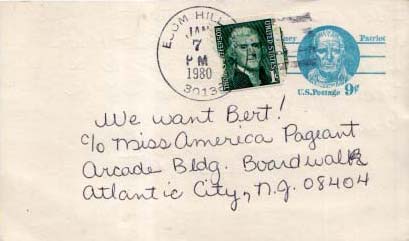 JAN
7
PM
1980
30132
UNITED STATES
1c
Patriot
U.S. Postage 9¢
We want Bert!
c/o Miss America Pageant
Arcade Bldg. Boardwalk
Atlantic City, N.J. 08404